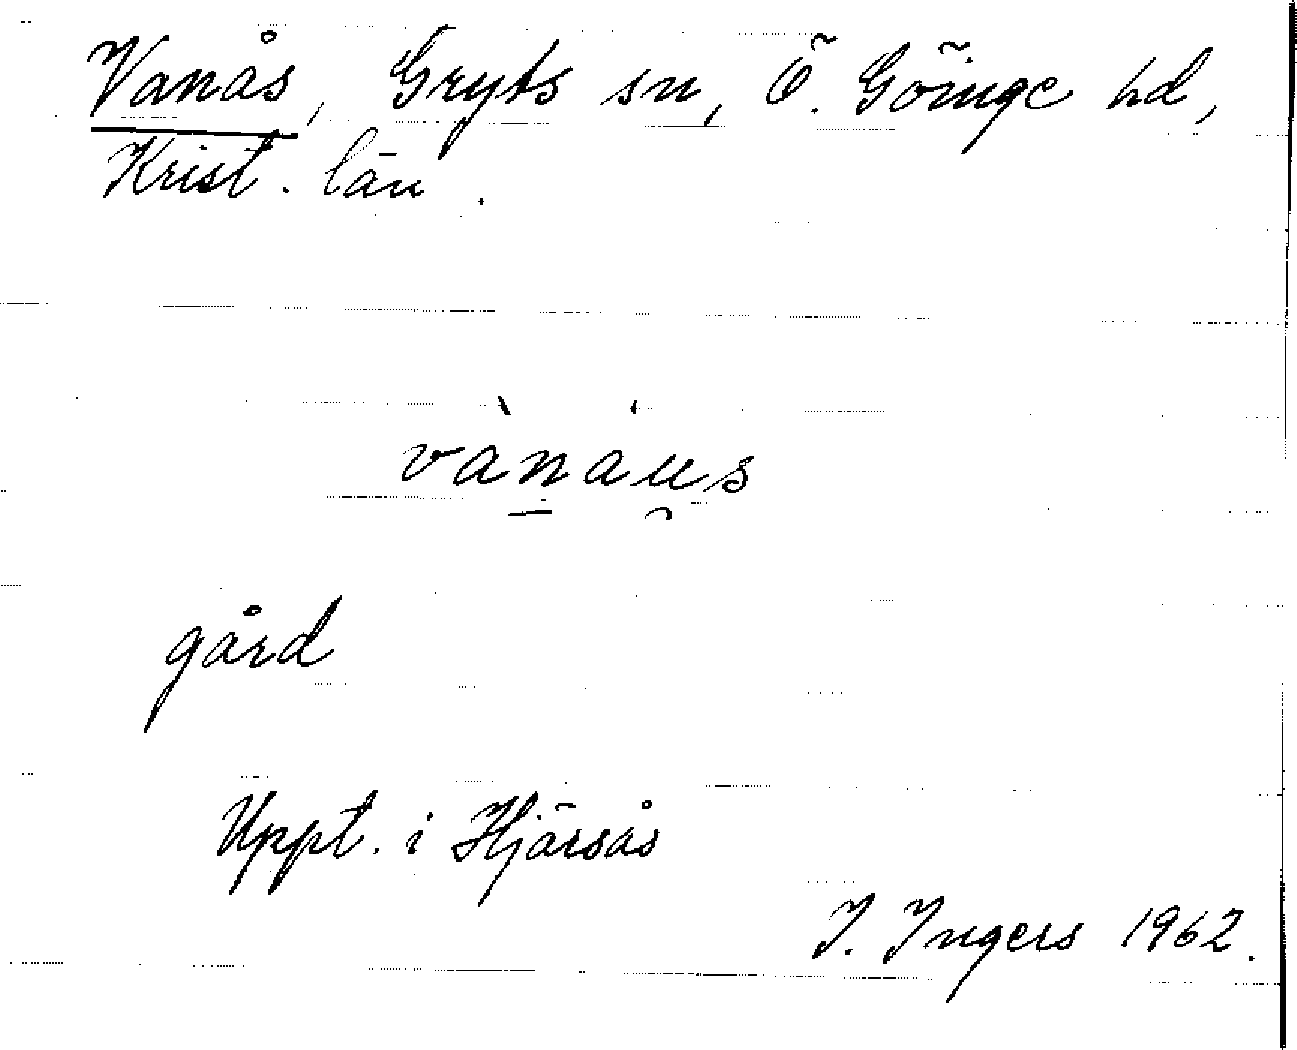 Vanås, Gryts sn, Ö. Göinge hd,
Krist. län.
vànáu̯s
gård
Uppt. i Hjärsås
I. Ingers 1962.